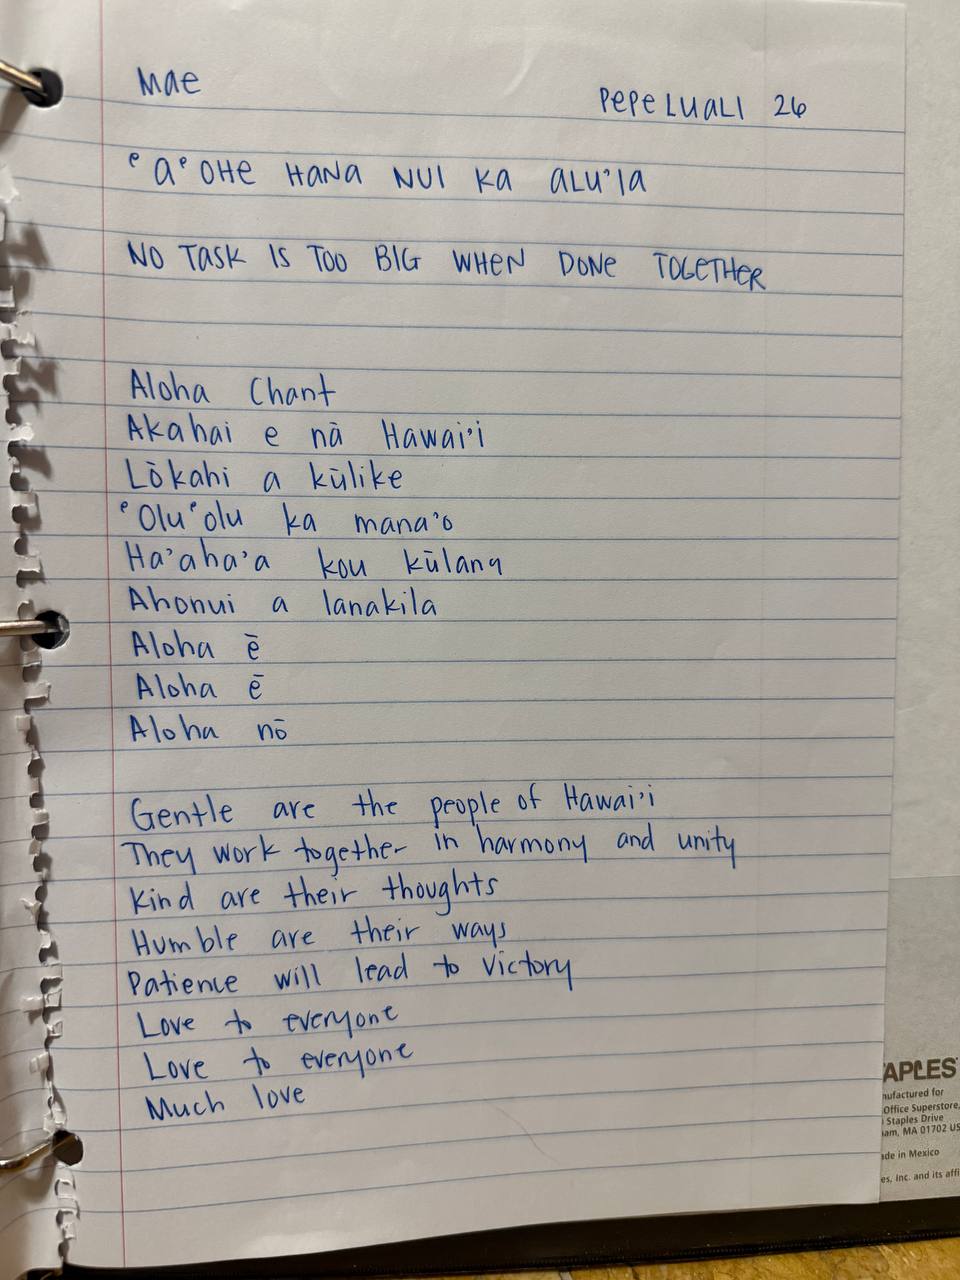 Mae
PEPELUALI 26
ʻAʻOHE HANA NUI KA ALU'IA
NO TASK IS TOO BIG WHEN DONE TOGETHER
Aloha Chant
Akahai e nā Hawai'i
Lōkahi a kūlike
ʻOluʻolu ka mana'o
Ha'aha'a kou kūlana
Ahonui a lanakila
Aloha ē
Aloha ē
Aloha nō
Gentle are the people of Hawai'i
They work together in harmony and unity
Kind are their thoughts
Humble are their ways
Patience will lead to victory
Love to everyone
Love to everyone
Much love
APLES
nufactured for
Office Superstore,
Staples Drive
am, MA 01702 US
ade in Mexico
es, Inc. and its affi